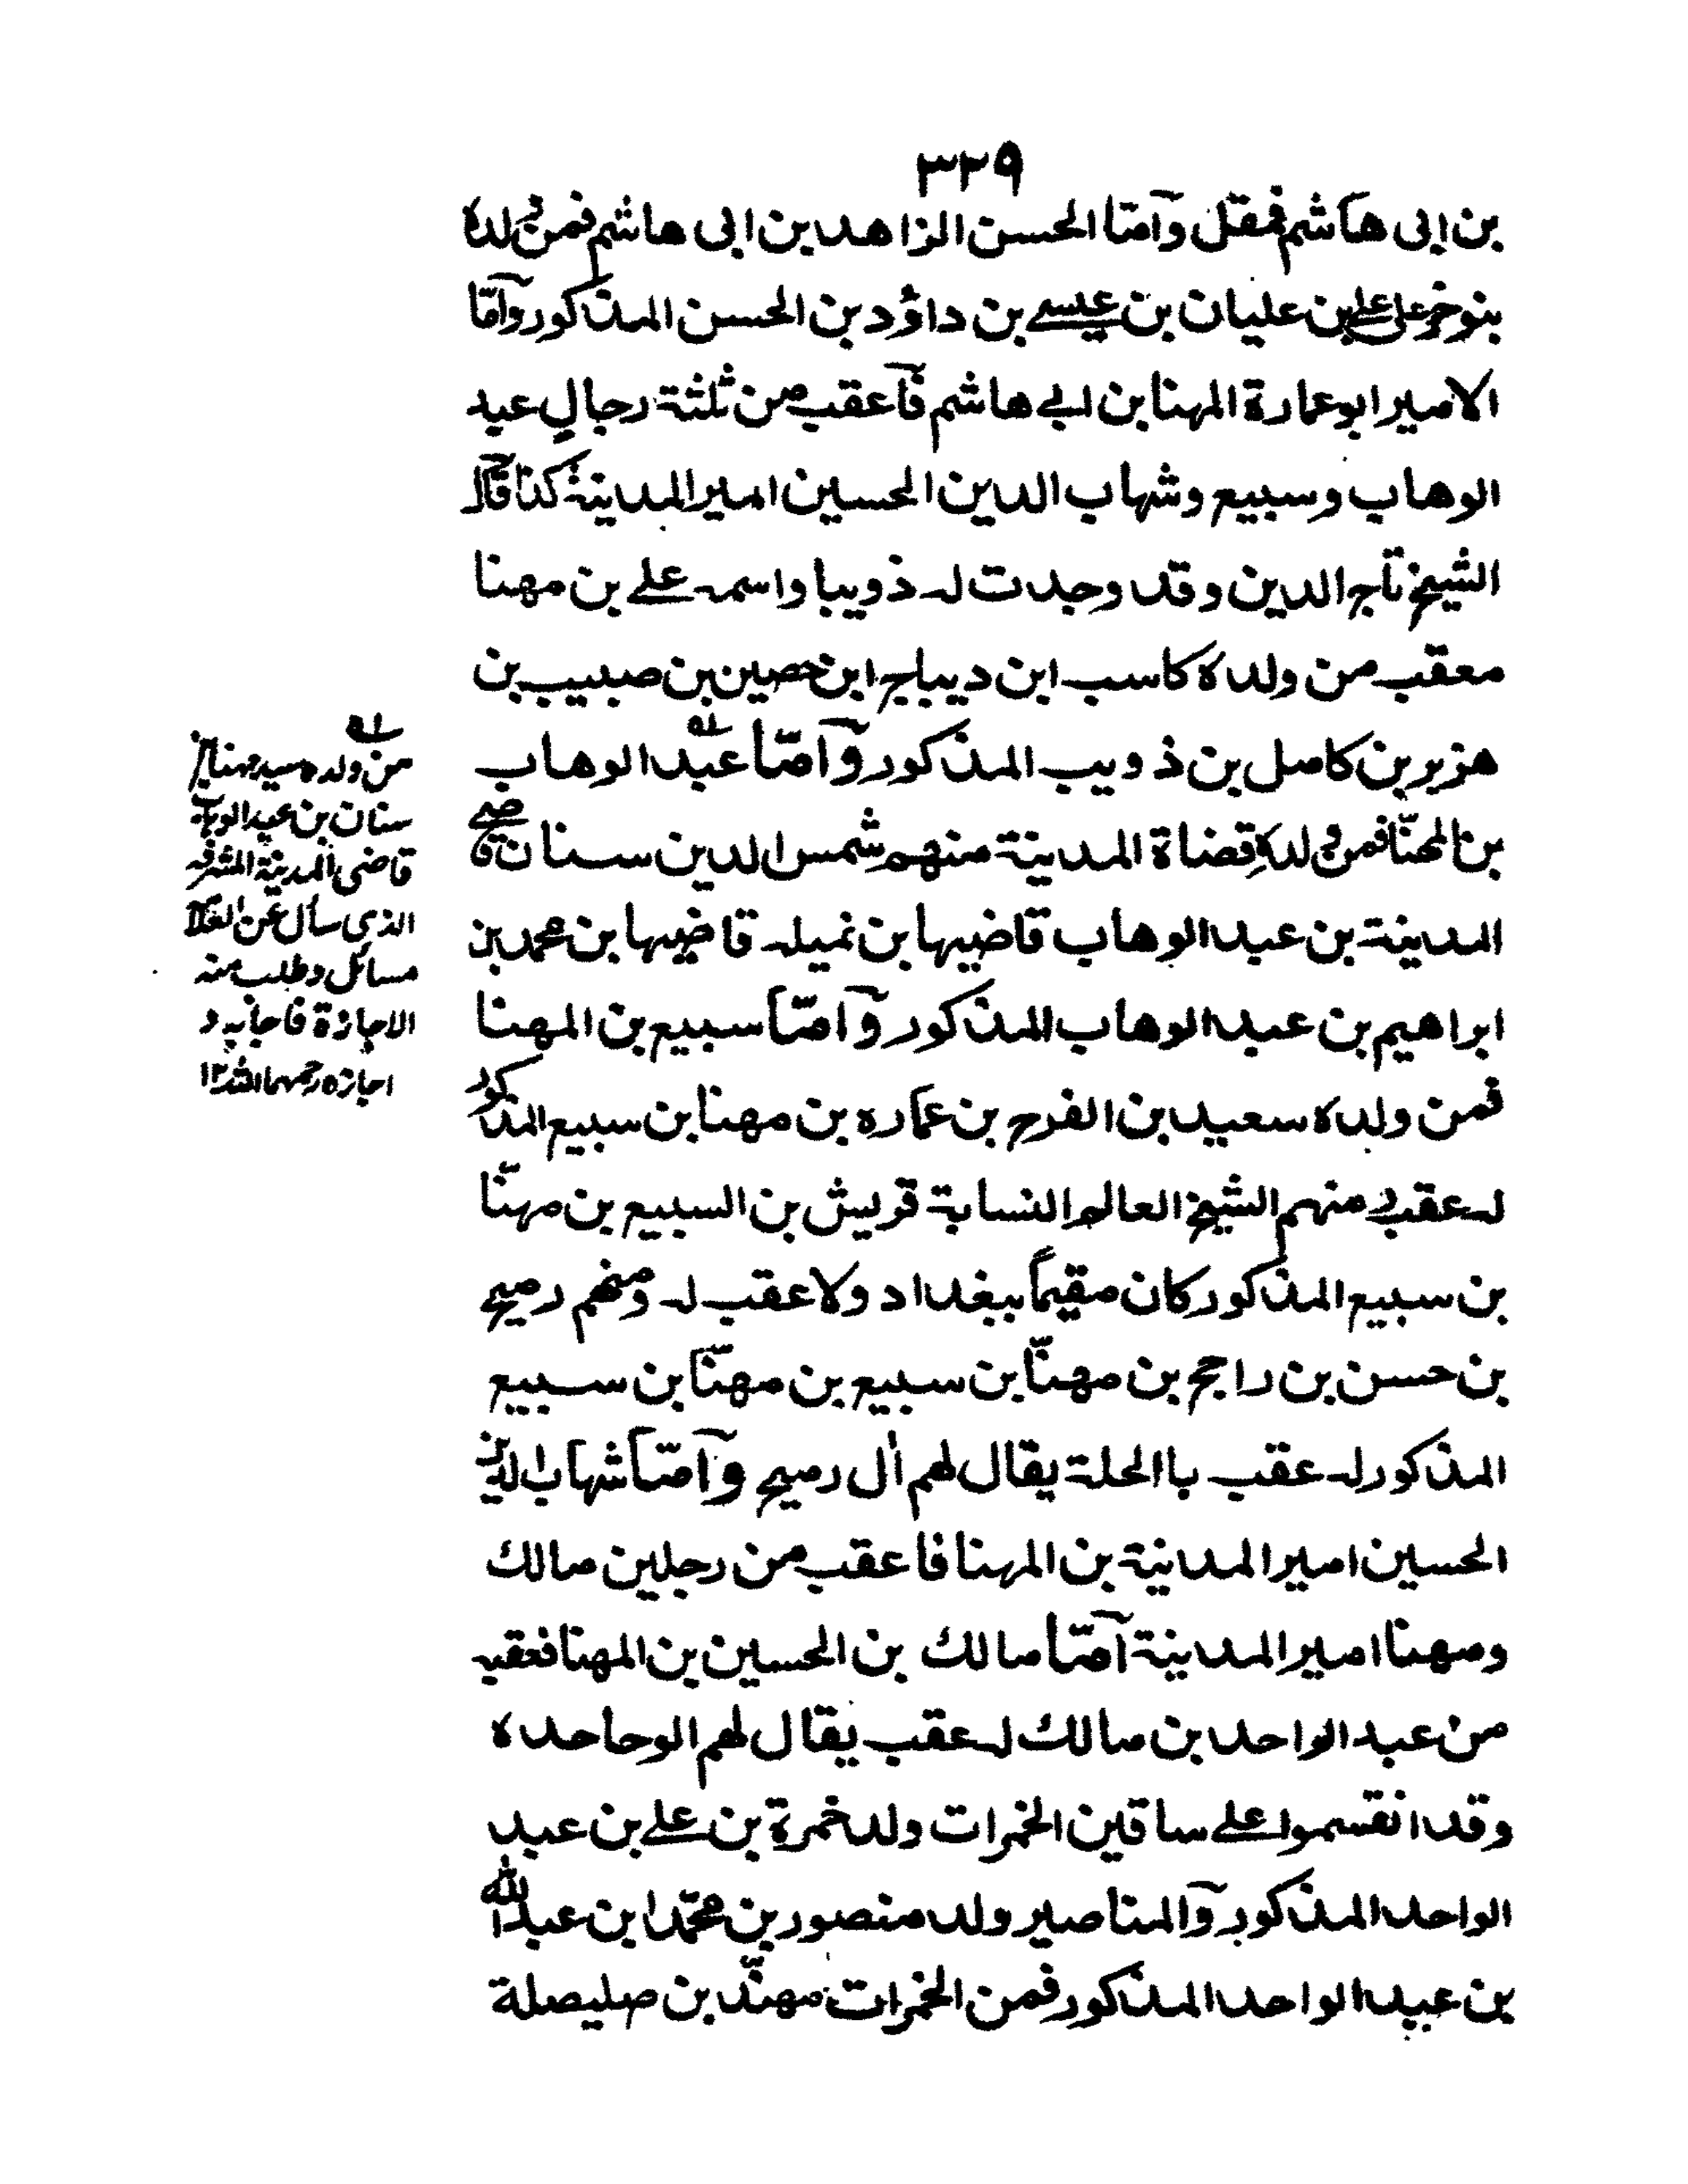 ٣٢٩
بن ابى هاشم فمقل وآمّا الحسن الزاهد بن ابى هاشم فمن ولده
بنو خزعل على بن عليان بن عيسے بن داؤد بن الحسن المذكور وآمّا
الامير ابو عمارة المهنا بن ابے هاشم فآعقب من ثلثة رجالٍ عبد
الوهاب وسبيع وشهاب الدين الحسين امير المدينة كذا قال
الشيخ تاج الدين وقد وجدت له ذويبا واسمه علے بن مهنا
معقب من ولده كاسب ابن ديباج ابن حصين بن صبيب بن
هزبر بن كامل بن ذويب المذكور وآمّا عبد الوهاب
بن المحنّا فمن ولده قضاة المدينة منهم شمس الدين سنان قاضى
المدينة بن عبد الوهاب قاضيها بن نميله قاضيها بن محمد بن
ابراهيم بن عبد الوهاب المذكور وآمّا سبيع بن المهنا
فمن ولده سعيد بن الفرج بن عماره بن مهنا بن سبيع المذكور
له عقب منهم الشيخ العالم النسابة قريش بن السبيع بن مهنّا
بن سبيع المذكور كان مقيماً ببغداد ولا عقب له ومنهم رميح
بن حسن بن راجح بن مهنّا بن سبيع بن مهنّا بن سبيع
المذكور له عقب باالحلة يقال لهم اٰل رميح وآمّا شهاب الدين
الحسين امير المدينة بن المهنا فاعقب من رجلين مالك
ومهنا امير المدينة آمّا مالك بن الحسين بن المهنا فعقبه
من عبد الواحد بن مالك له عقب يقال لهم الوحاحده
وقد انقسموا علے ساقين الخمرات ولد خمرة بن علے بن عبد
الواحد المذكور وآلمناصير ولد منصور بن محمّد ابن عبد الله
بن عبد الواحد المذكور فمن الخمرات مهنّد بن صليصلة
من ولده سيد مهنا بن
سنان بن عبد الوہاب
قاضى المدينة المشرفه
الذى سأل عن العلامة
مسائل وطلب منه
الاجازة فاجابه و
اجازه رحمهما الله ١٢